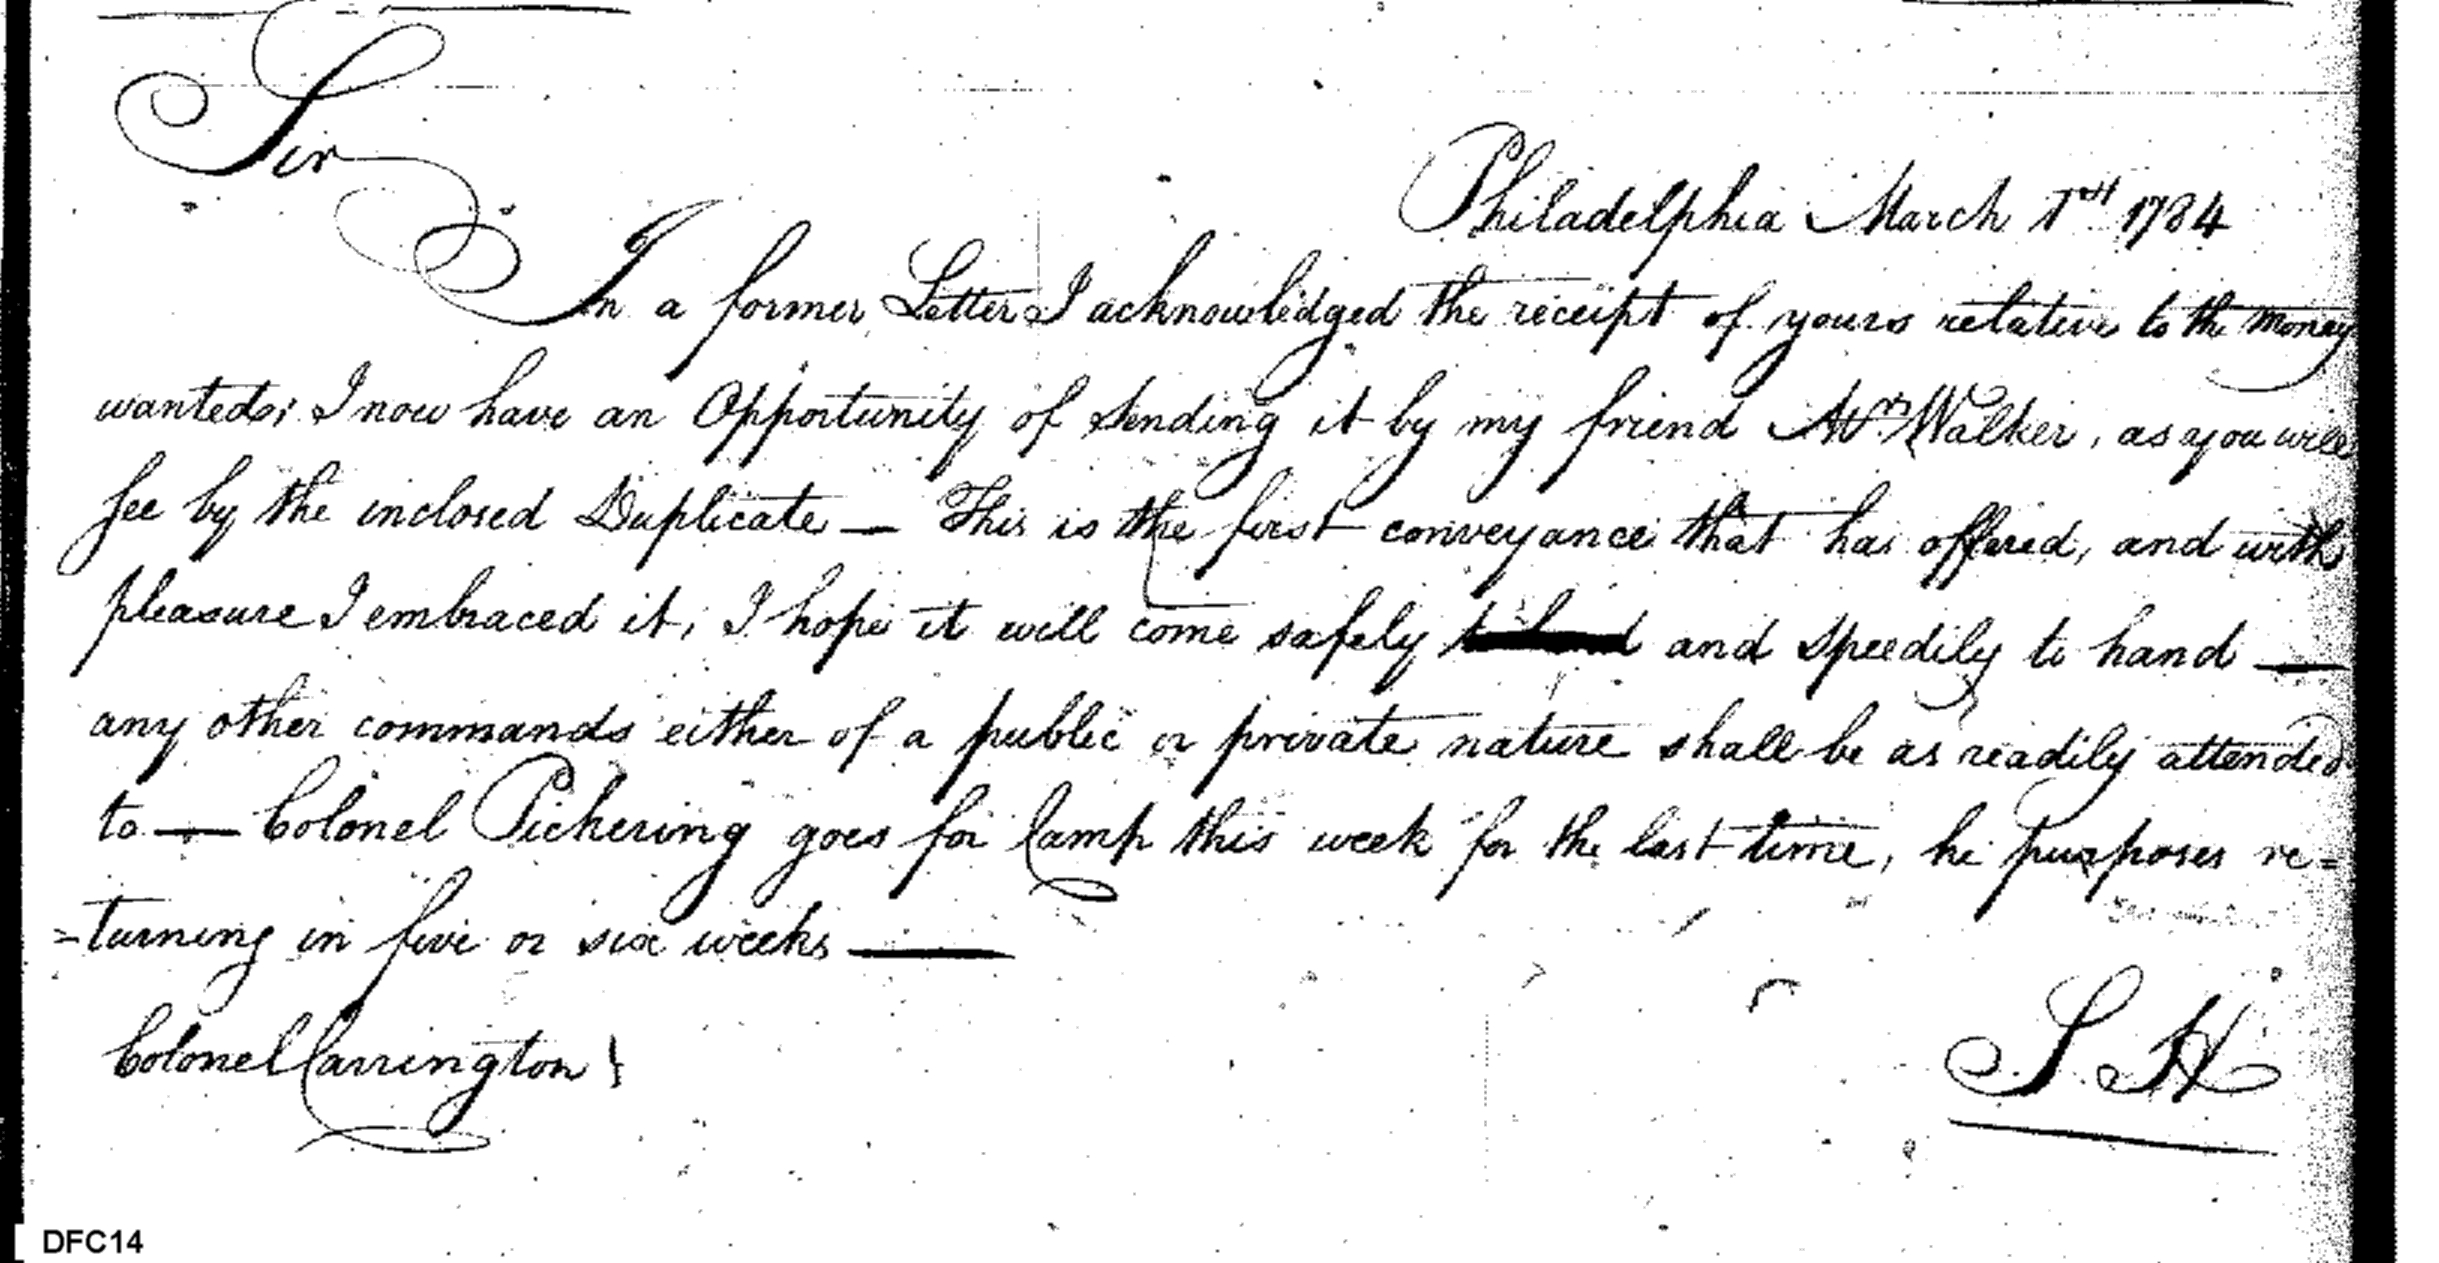 Sir
Philadelphia March 1st 1784
In a former Letter I acknowledged the receipt of yours relative to the money
wanted; I now have an Opportunity of sending it by my friend Mr Walker, as you will
see by the inclosed Duplicate — This is the first conveyance that has offered, and with
pleasure I embraced it; I hope it will come safely and speedily to hand —
any other commands either of a public or private nature shall be as readily attended
to — Colonel Pickering goes for Camp this week for the last time, he purposes re=
=turning in five or six weeks —
Colonel Carrington
S. H
DFC14